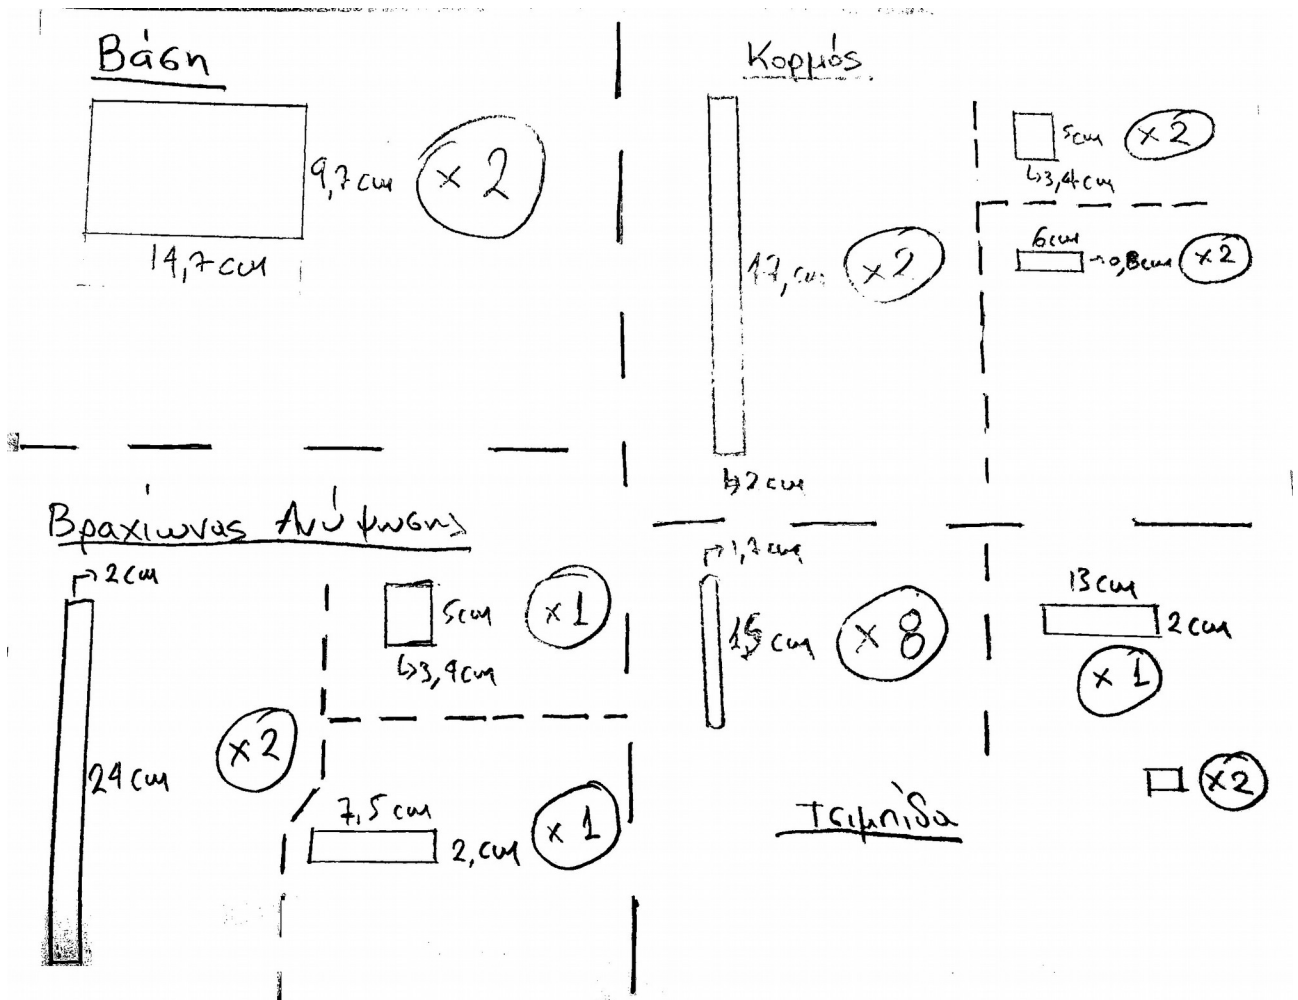 Βάση
9,7 cm
x 2
14,7 cm
Κορμός
17, cm
x2
2 cm
5cm
x 2
3,4 cm
6cm
0,8cm
x2
Βραχίωνας Ανύψωσης
2 cm
24 cm
x2
5cm
x 1
3,4cm
7,5 cm
2, cm
x 1
1,7 cm
15 cm
x 8
13 cm
2 cm
x 1
x2
Τσιμπίδα